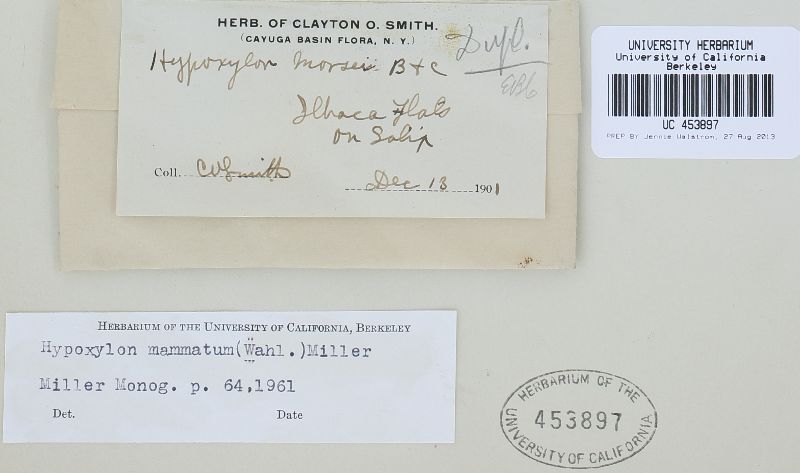 HERB. OF CLAYTON O. SMITH.
(CAYUGA BASIN FLORA, N. Y.)
Dupl.
Hypoxylon Morsei B + C
Ithaca Flats
on Salix
Coll. C O Smith
Dec 13 1901
UNIVERSITY HERBARIUM
University of California
Berkeley
UC 453897
PREP BY Jennie Walstrom, 27 Aug 2013
HERBARIUM OF THE UNIVERSITY OF CALIFORNIA, BERKELEY
Hypoxylon mammatum(Wahl.)Miller
Miller Monog. p. 64,1961
Det. Date
HERBARIUM OF THE
453897
UNIVERSITY OF CALIFORNIA